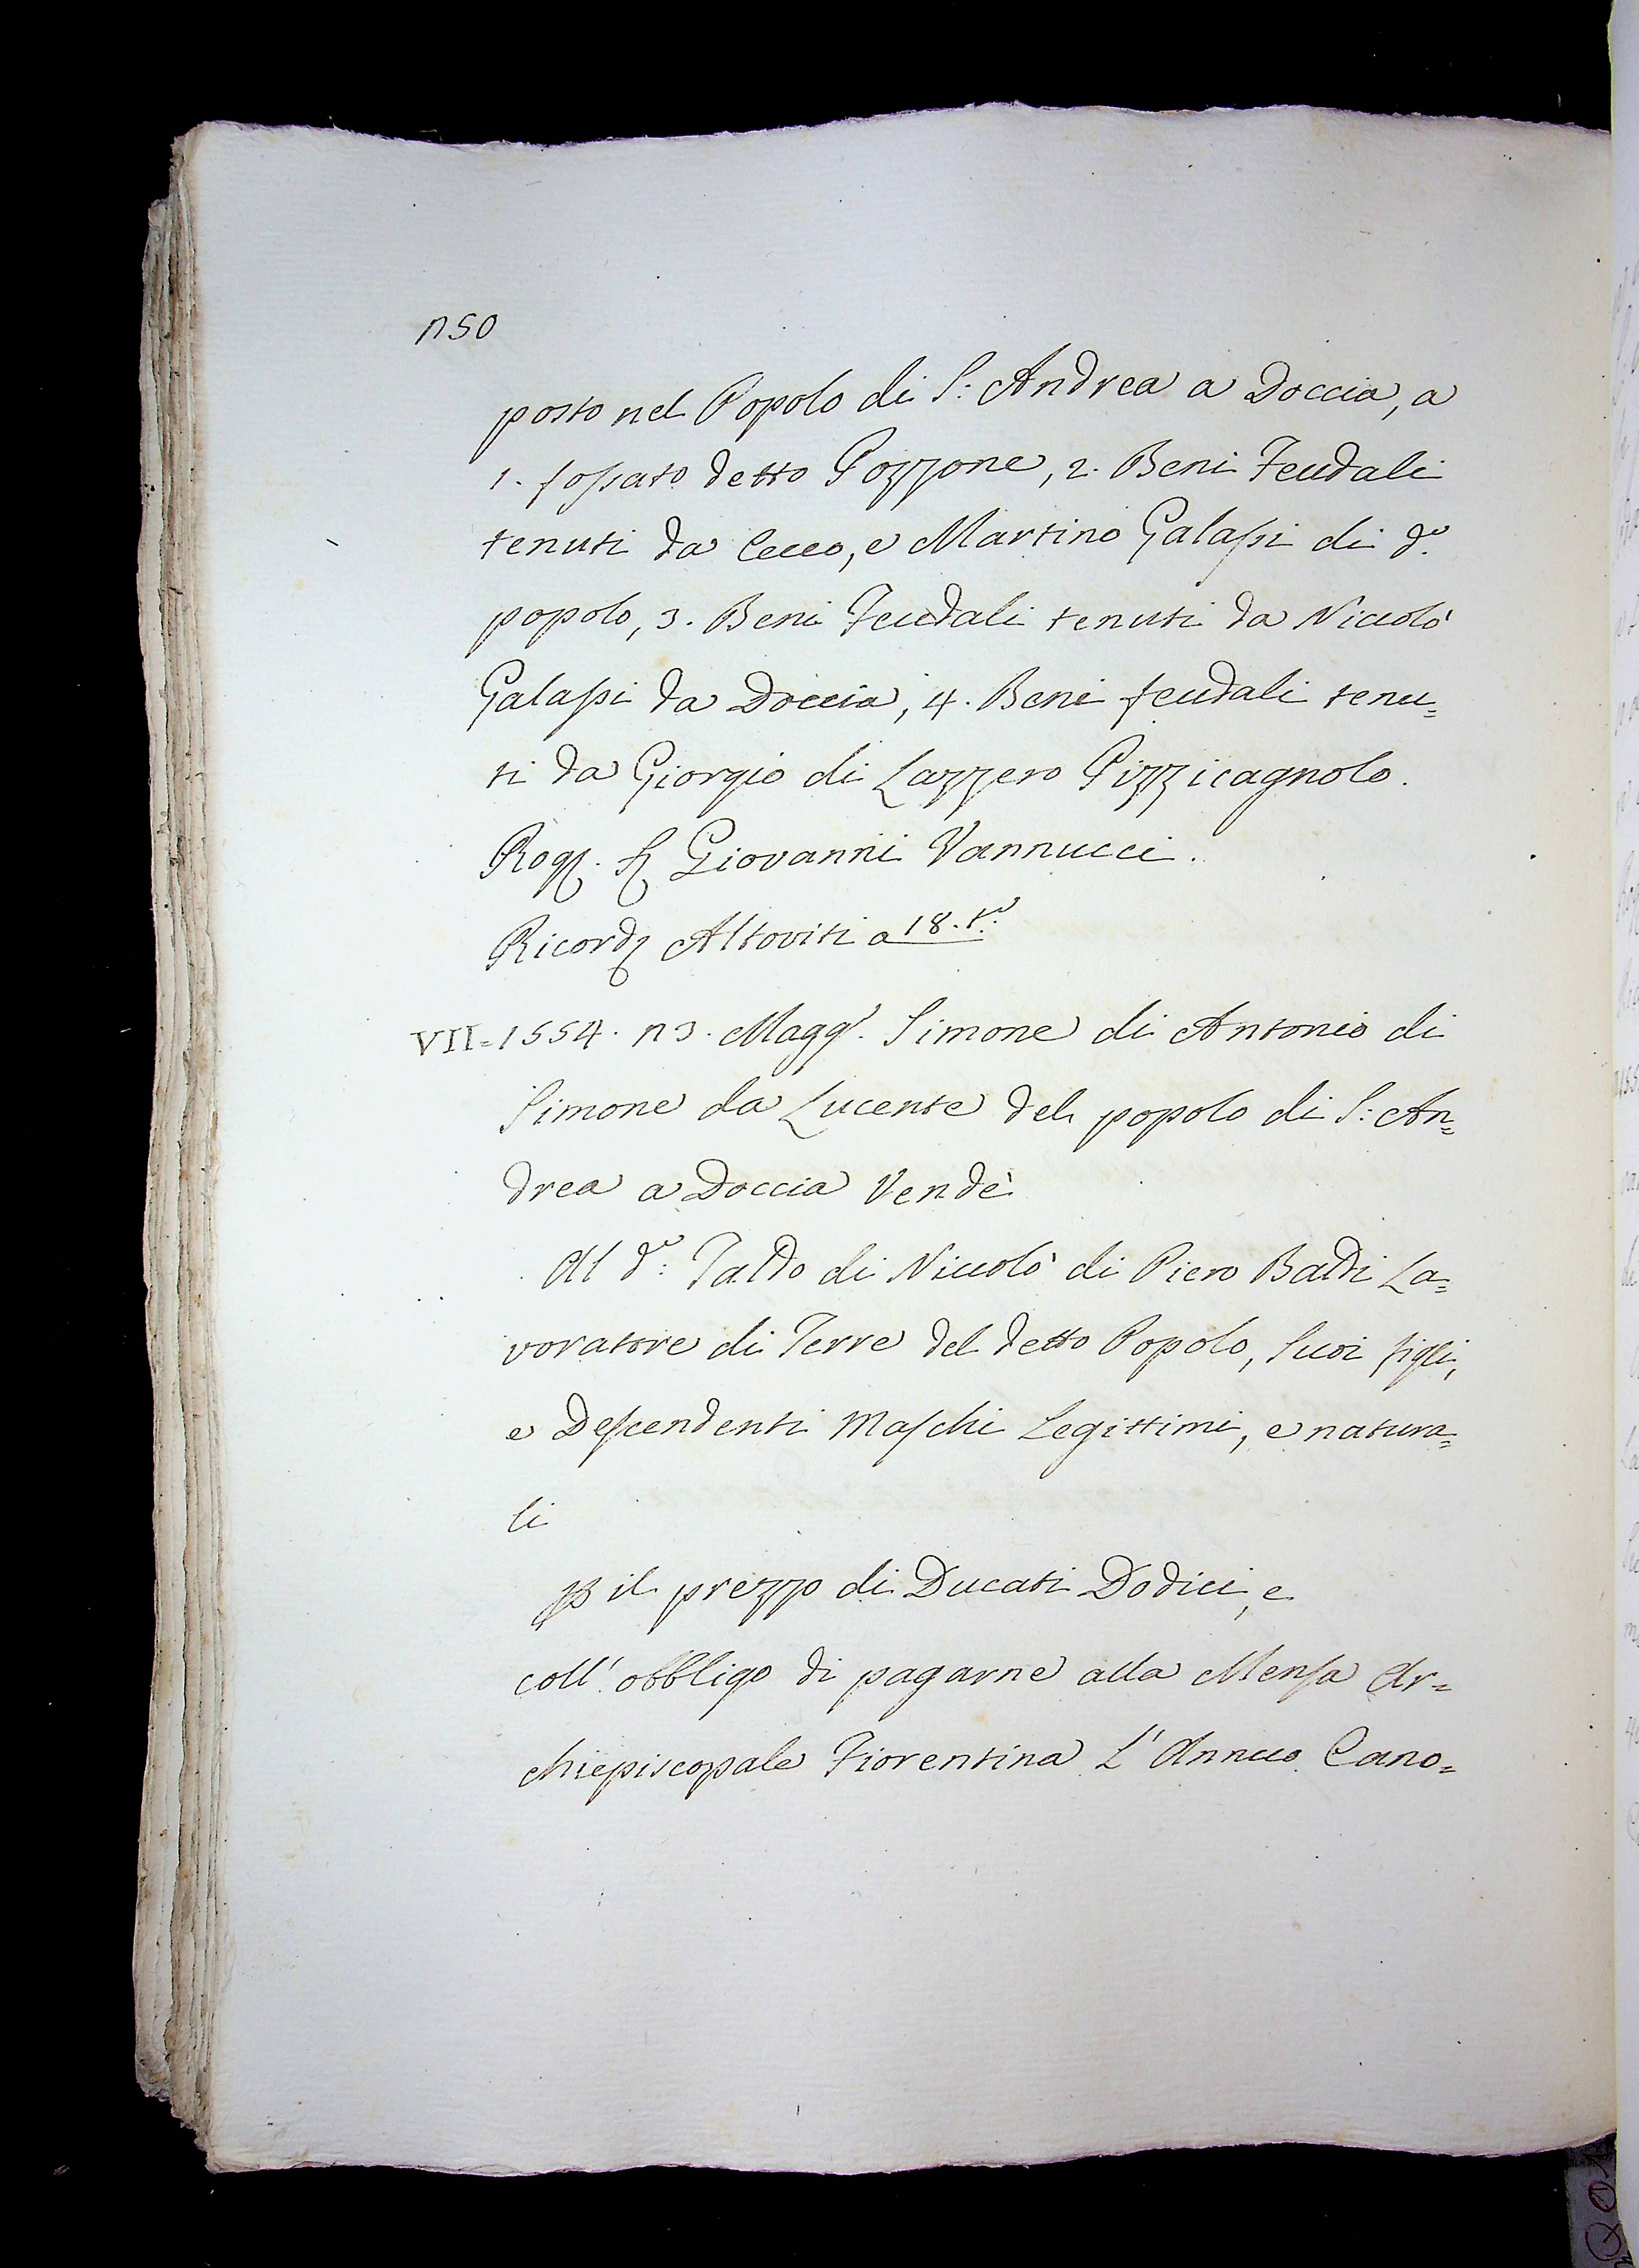 150
posto nel Popolo di S: Andrea a Doccia, a
1. fossato detto Pozzone, 2. Beni Feudali
tenuti da Cecco, e Martino Galassi di d.º
popolo, 3. Beni Feudali tenuti da Niccolò
Galassi da Doccia, 4. Beni feudali tenu=
ti da Giorgio di Lazzero Pizzicagnolo.
Rog. S Giovanni Vannucci.
Ricord Altoviti a 18. t.º
VII=1554. 13. Magg.º Simone di Antonio di
Simone da Lucente del popolo di S: An=
drea a Doccia Vendè
Al d.º: Taldo di Niccolò di Piero Baldi La=
voratore di Terre del detto Popolo, Suoi figli,
e Descendenti Maschi Legittimi, e natura=
li
p il prezzo di Ducati Dodici, e
coll' obbligo di pagarne alla Mensa Ar=
chiepiscopale Fiorentina L' Annuo Cano=